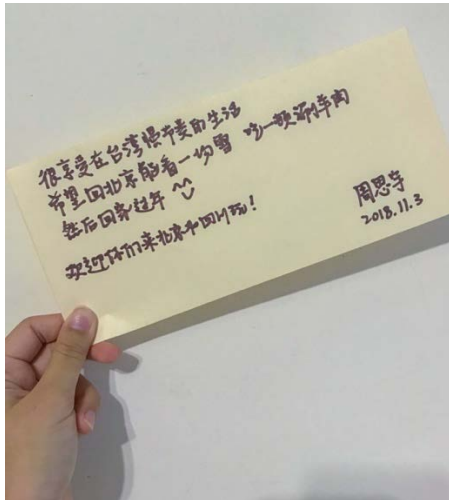 很享受在台湾慢节奏的生活
希望回北京能看一场雪 吃一顿涮羊肉
然后回家过年
欢迎你们来北京和四川玩！
周思宇
2018.11.3